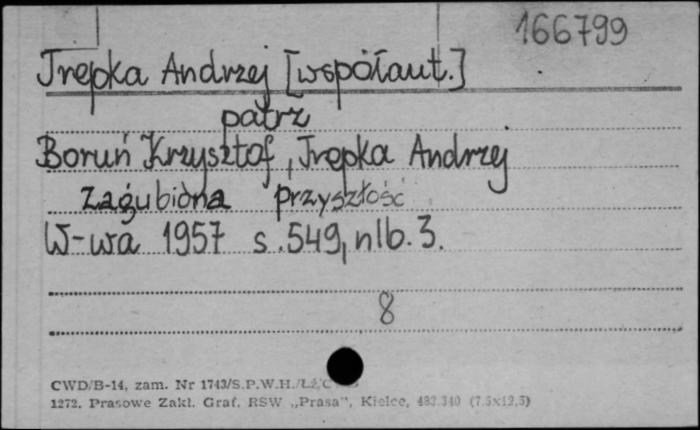 166799
Trepka Andrzej [współaut.]
patrz
Boruń Krzysztof, Trepka Andrzej
Zagubiona przyszłość
W-wa 1957 s. 549, nlb. 3.
8
CWD/B-14, zam. Nr 1743/S.P.W.H./Łź/C
1272. Prasowe Zakł. Graf. RSW „Prasa”, Kielce, 483.340 (7.5x12,5)